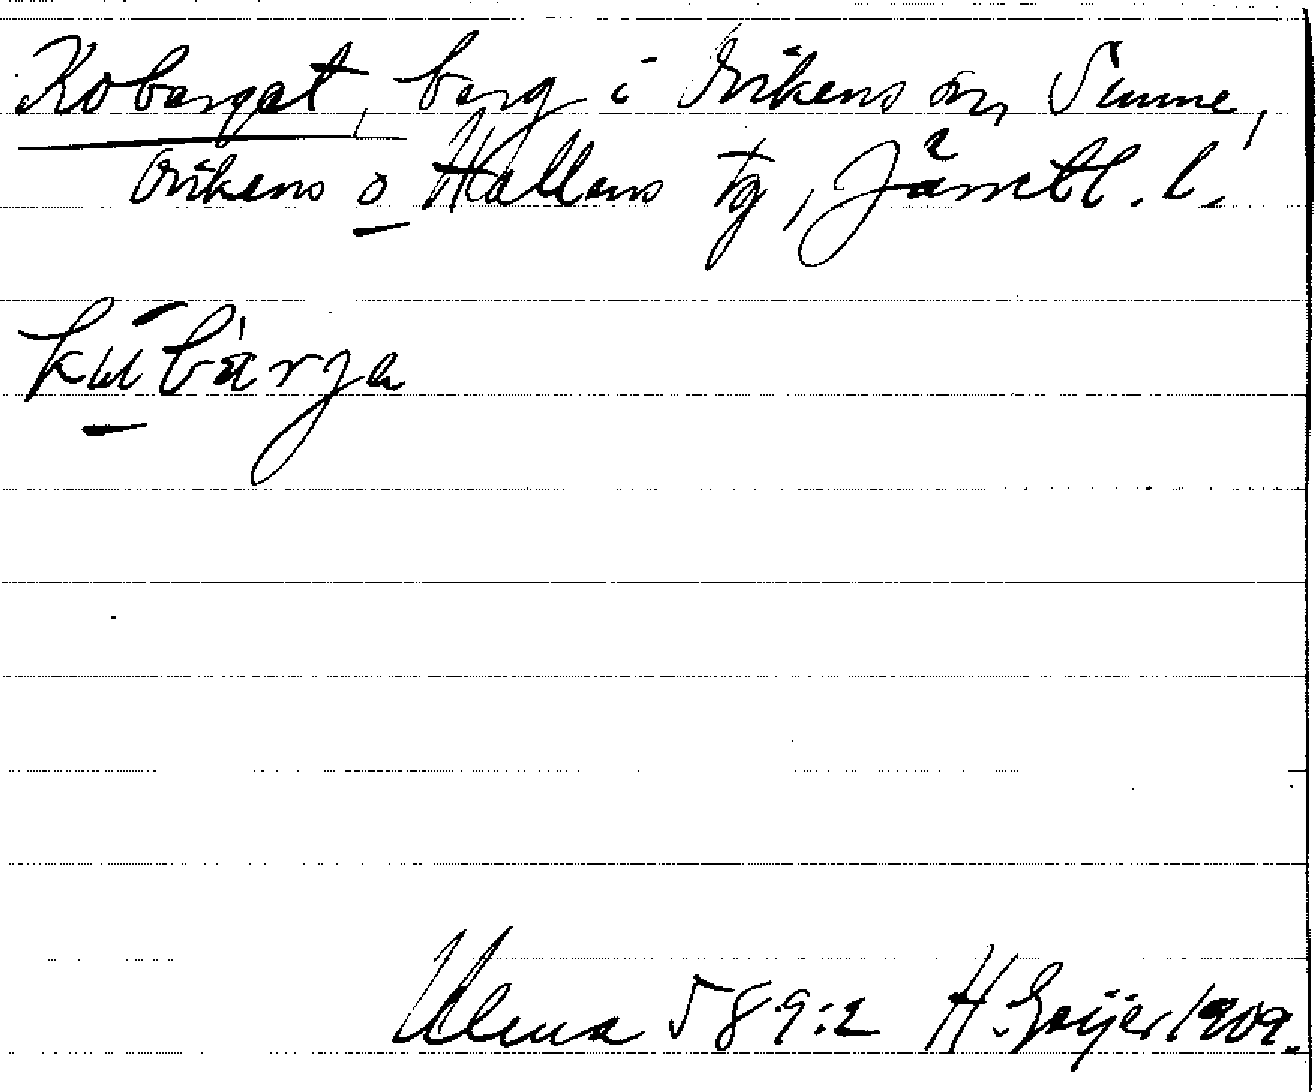 Koberget, berg i Ovikens sn, Sunne,
Ovikens o Hallens tg, Jämtl. l.
kúbärja
Ulma 589:2 H. Geijer 1909.